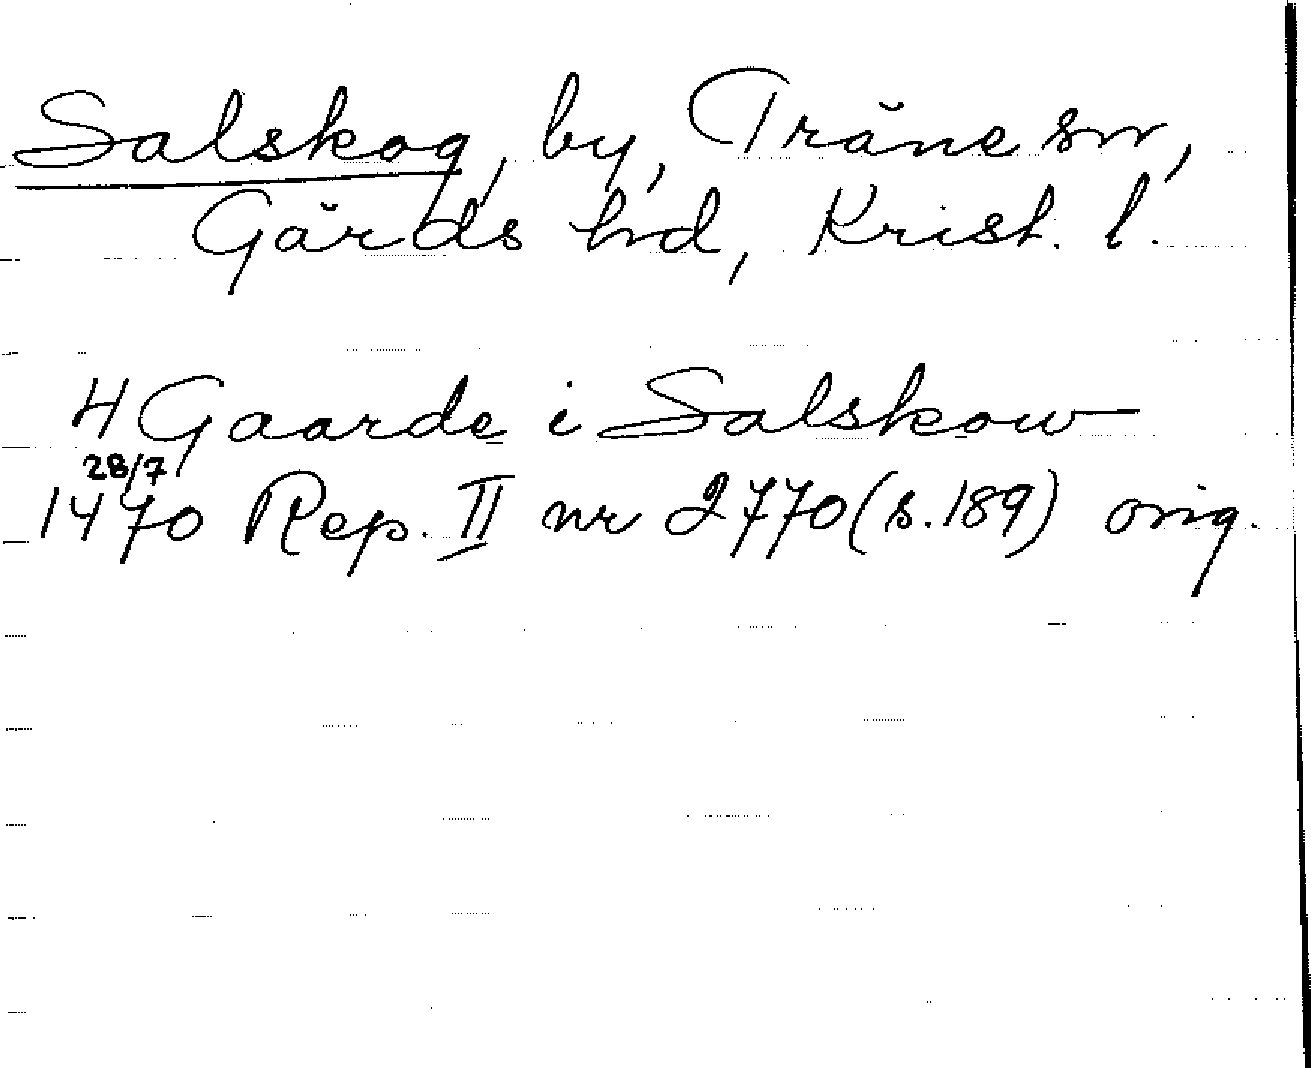 Salskog, by, Träne sn,
Gärds hd, Krist. l.
4 Gaarde i Salskow
28/7
1470 Rep. II nr 2770 (s. 189) orig.